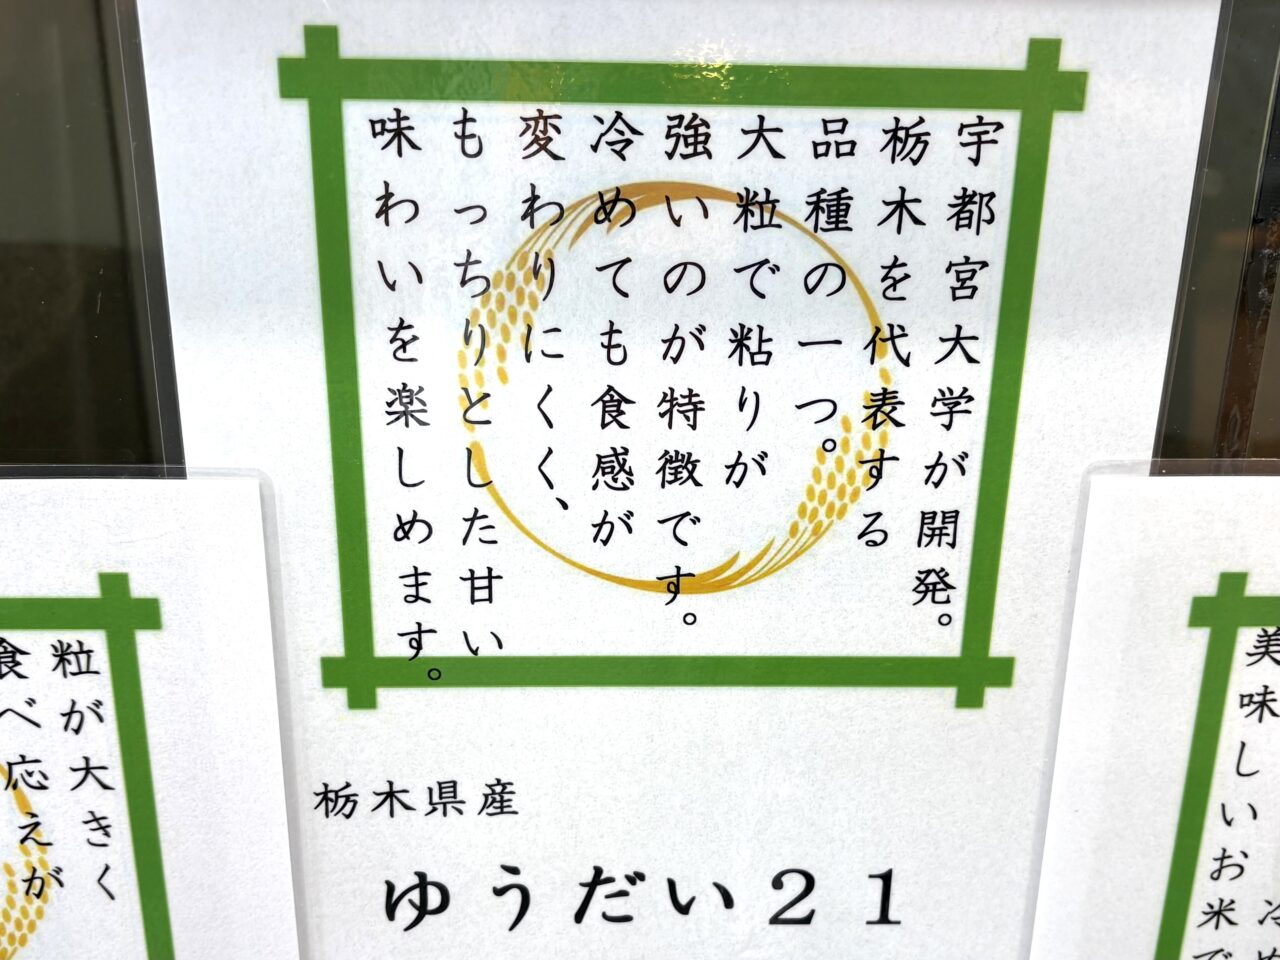 宇都宮大学が開発。
栃木を代表する
品種の一つ。
大粒で粘りが
強いのが特徴です。
冷めても食感が
変わりにくく、
もっちりとした甘い
味わいを楽しめます。
栃木県産
ゆうだい21
粒が大きく
食べ応えが
美味しいお米で
冷め